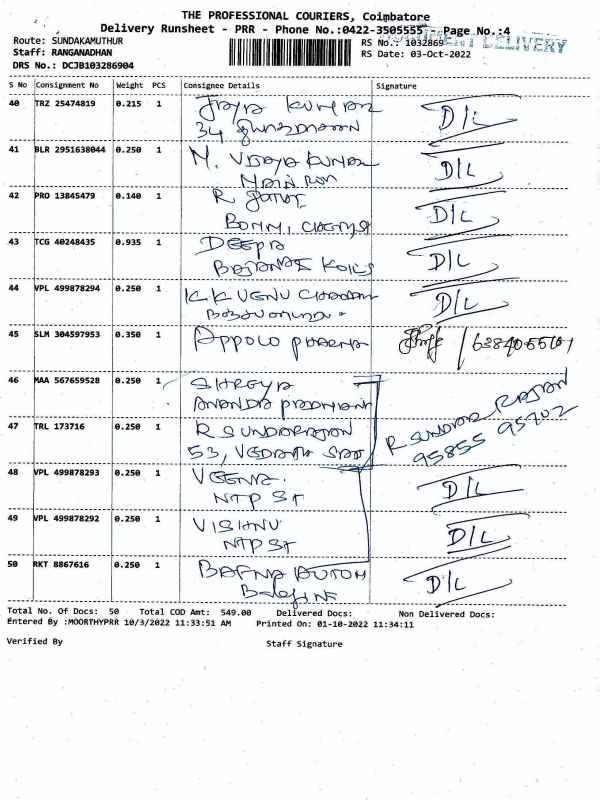 THE PROFESSIONAL COURIERS, Coimbatore
Delivery Runsheet - PRR - Phone No.:0422-3505555 Page No.:4
DELIVERY
Route: SUNDAKAMUTHUR
RS No.: 1032869
Staff: RANGANADHAN
RS Date: 03-Oct-2022
DRS No.: DCJB103286904
S No Consignment No Weight PCS Consignee Details Signature
40 TRZ 25474819 0.215 1 Jaya Kumar D/L
34
41 BLR 2951638044 0.250 1 M. VIJAYA KUMAR D/L
MAIN
42 PRO 13845479 0.140 1 R D/L
43 TCG 40248435 0.935 1 DEEPA D/L
44 VPL 499878294 0.250 1 K K VENU D/L
45 SLM 304597953 0.350 1 APPOLO PHARMA
46 MAA 567659528 0.250 1 SHREYA
ANANDA PRADHAN
47 TRL 173716 0.250 1 R SUNDARAJAN R SUNDAR RAJAN
53, VEDATH 95855 95702
48 VPL 499878293 0.250 1 VEENA. D/L
NTP ST
49 VPL 499878292 0.250 1 VISHNU D/L
NTP ST
50 RKT 8867616 0.250 1 BAFNA AUTOM D/L
Total No. Of Docs: 50 Total COD Amt: 549.00 Delivered Docs: Non Delivered Docs:
Entered By :MOORTHYPRR 10/3/2022 11:33:51 AM Printed On: 01-10-2022 11:34:11
Verified By Staff Signature